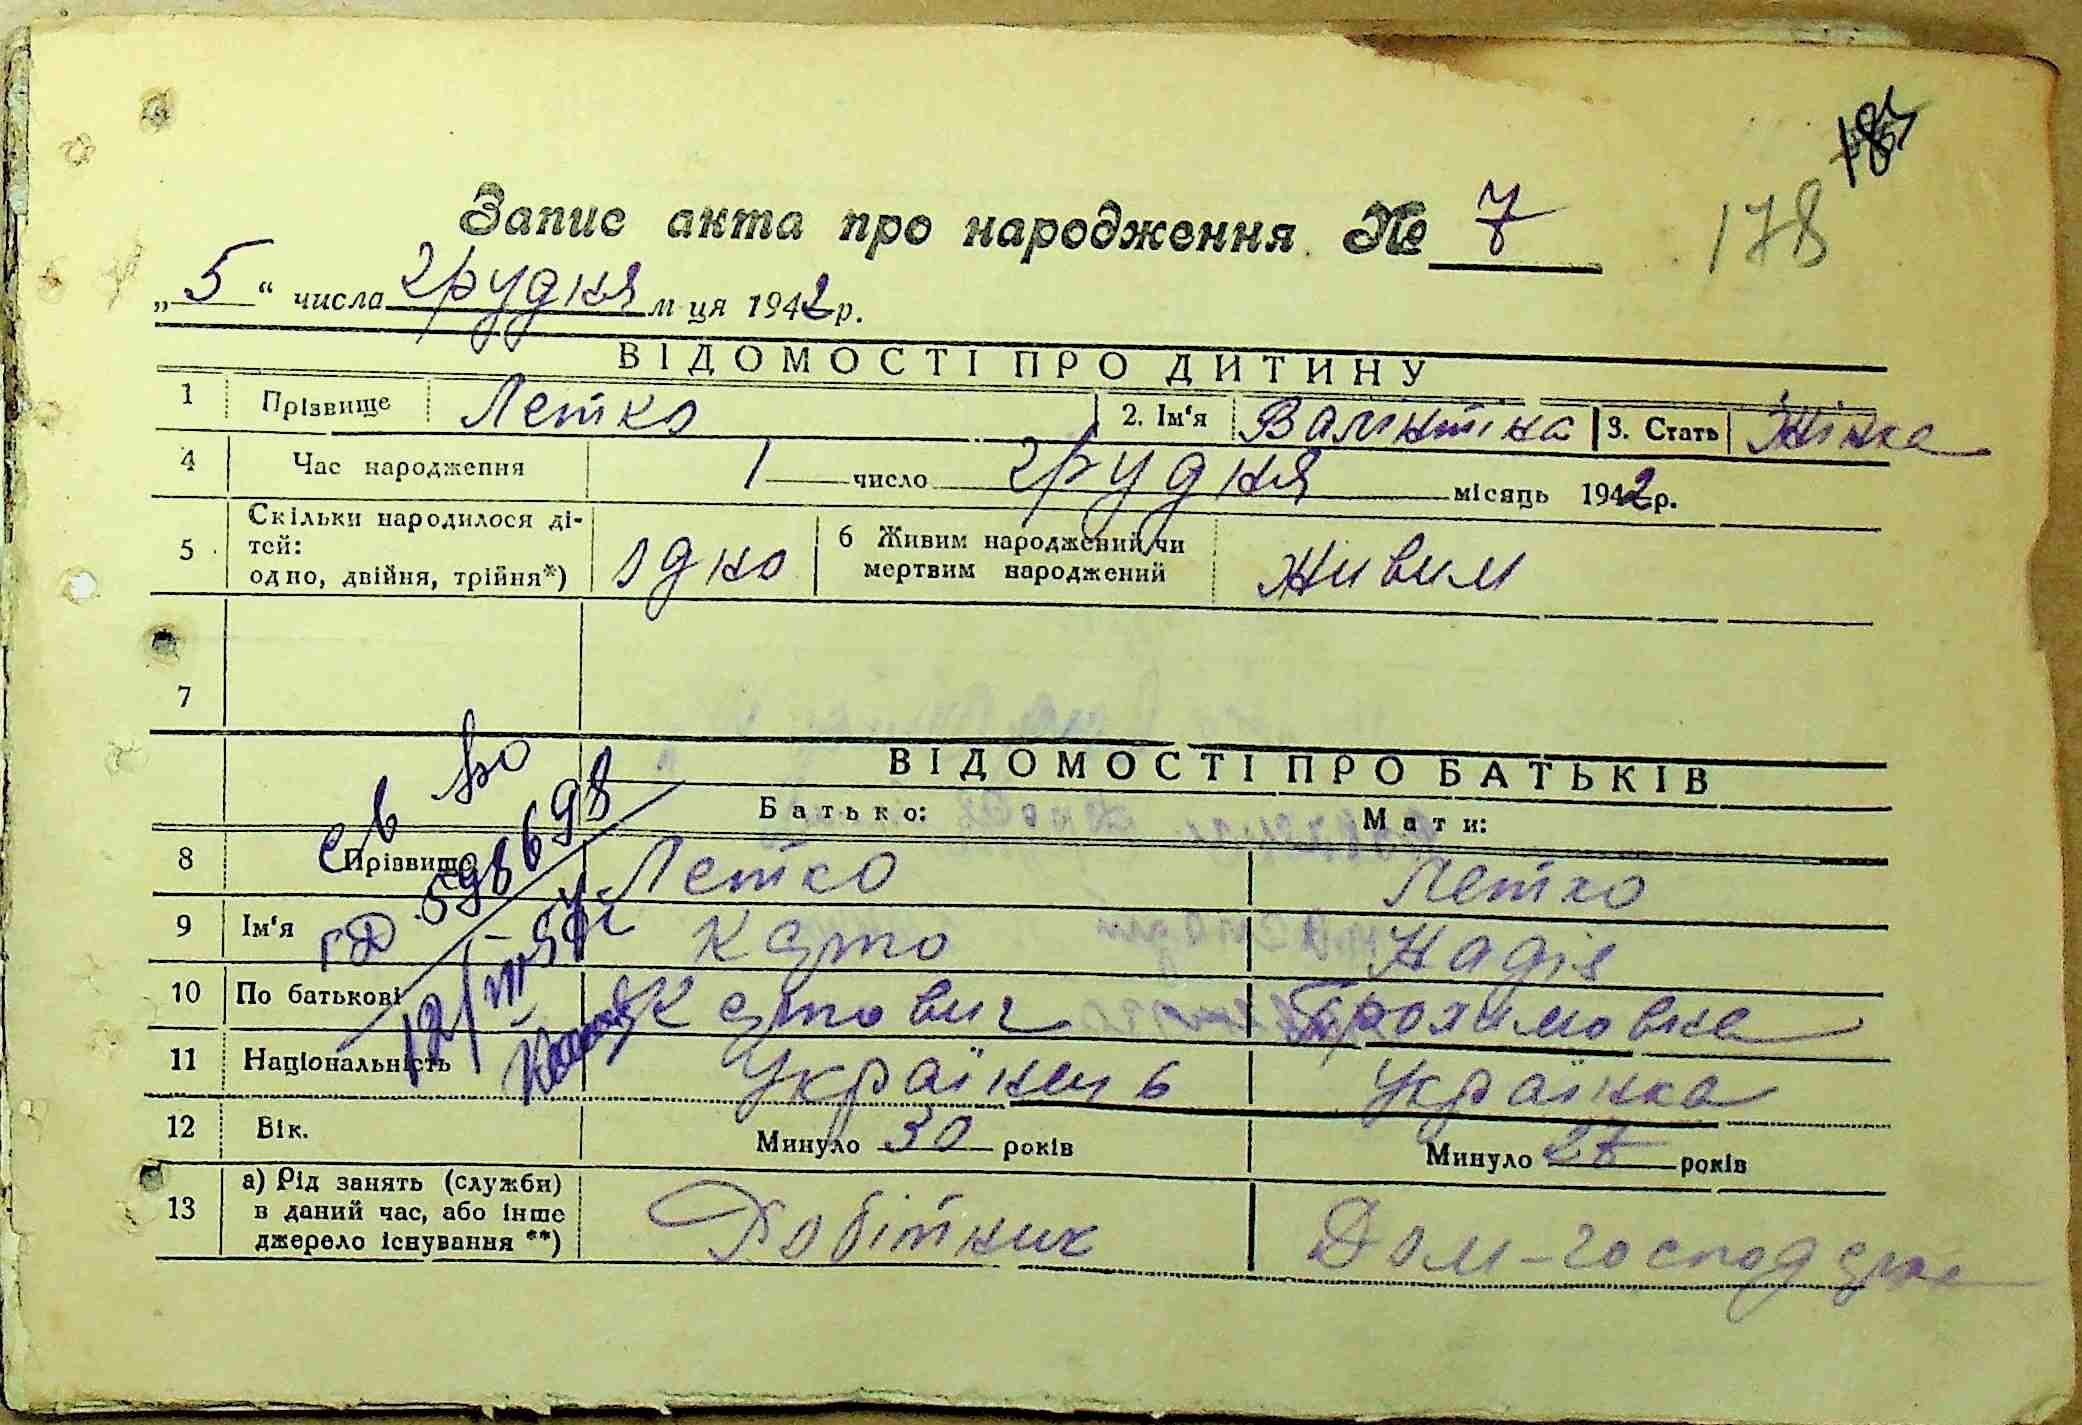 183
178
Запис акта про народження № 7
„5“ числа грудня м-ця 1942 р.
ВІДОМОСТІ ПРО ДИТИНУ
1 Прізвище Летко 2. Ім‘я Валінтіна 3. Стать Жінка
4 Час народження 1 число грудня місяць 1942 р.
5 Скільки народилося ді-
тей:
одно, двійня, трійня*) одно 6 Живим народжений чи
мертвим народжений Живим
7
ВІДОМОСТІ ПРО БАТЬКІВ
Батько: Мати:
8 Прізвище Летко Летко
9 Ім‘я Надія
10 По батькові Трохимовна
11 Національність Українець Українка
12 Вік. Минуло 30 років Минуло 27 років
13 а) Рід занять (служби)
в даний час, або інше
джерело існування **) Робітник Дом-господарка
св во
ГД 598698
12/III-57г